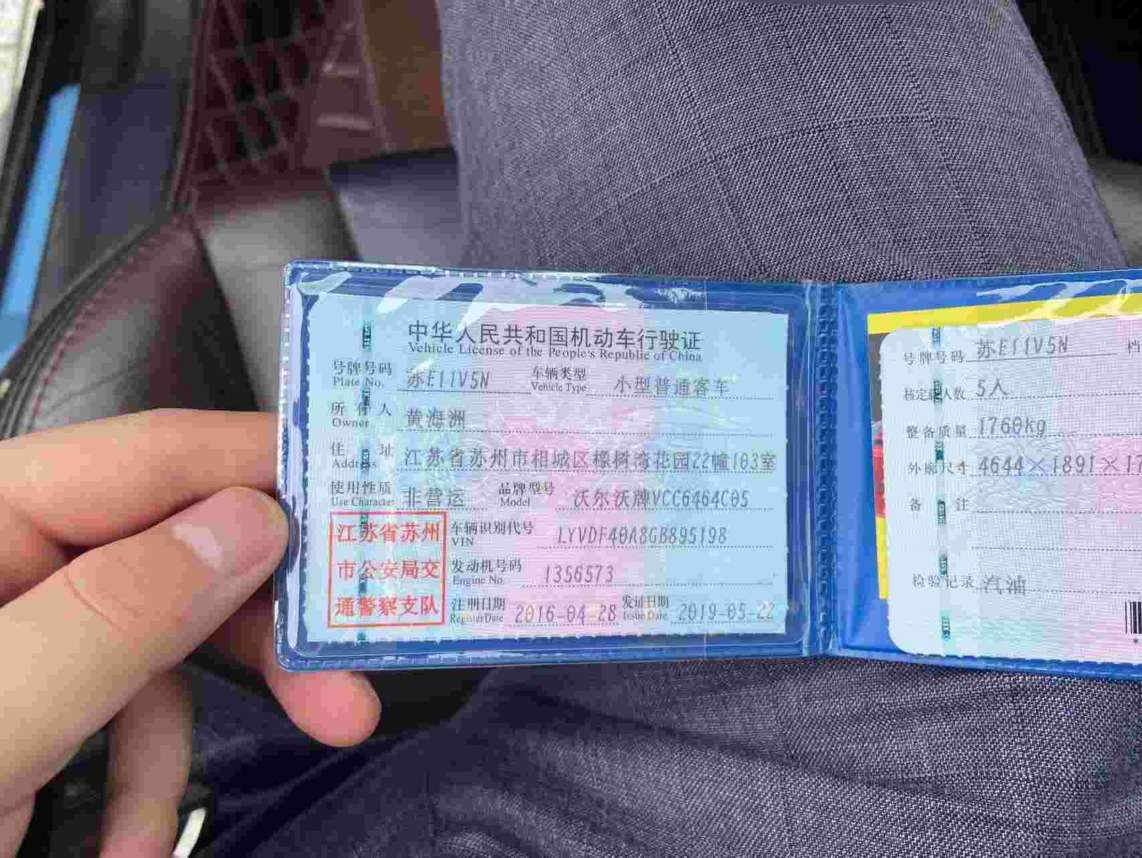 中华人民共和国机动车行驶证
Vehicle License of the People's Republic of China
号牌号码 苏E11V5N 车辆类型 小型普通客车
Plate No. Vehicle Type
所有人 黄海洲
Owner
住址 江苏省苏州市相城区橡树湾花园22幢103室
Address
使用性质 非营运 品牌型号 沃尔沃牌VCC6464C05
Use Character Model
江苏省苏州
市公安局交
通警察支队
车辆识别代号 LYVDF40A8GB895198
VIN
发动机号码 1356573
Engine No.
注册日期 2016-04-28 发证日期 2019-05-22
Register Date Issue Date
号牌号码 苏E11V5N 档
核定载人数 5人
整备质量 1760kg
外廓尺寸 4644×1891×17
备注
检验记录 汽油